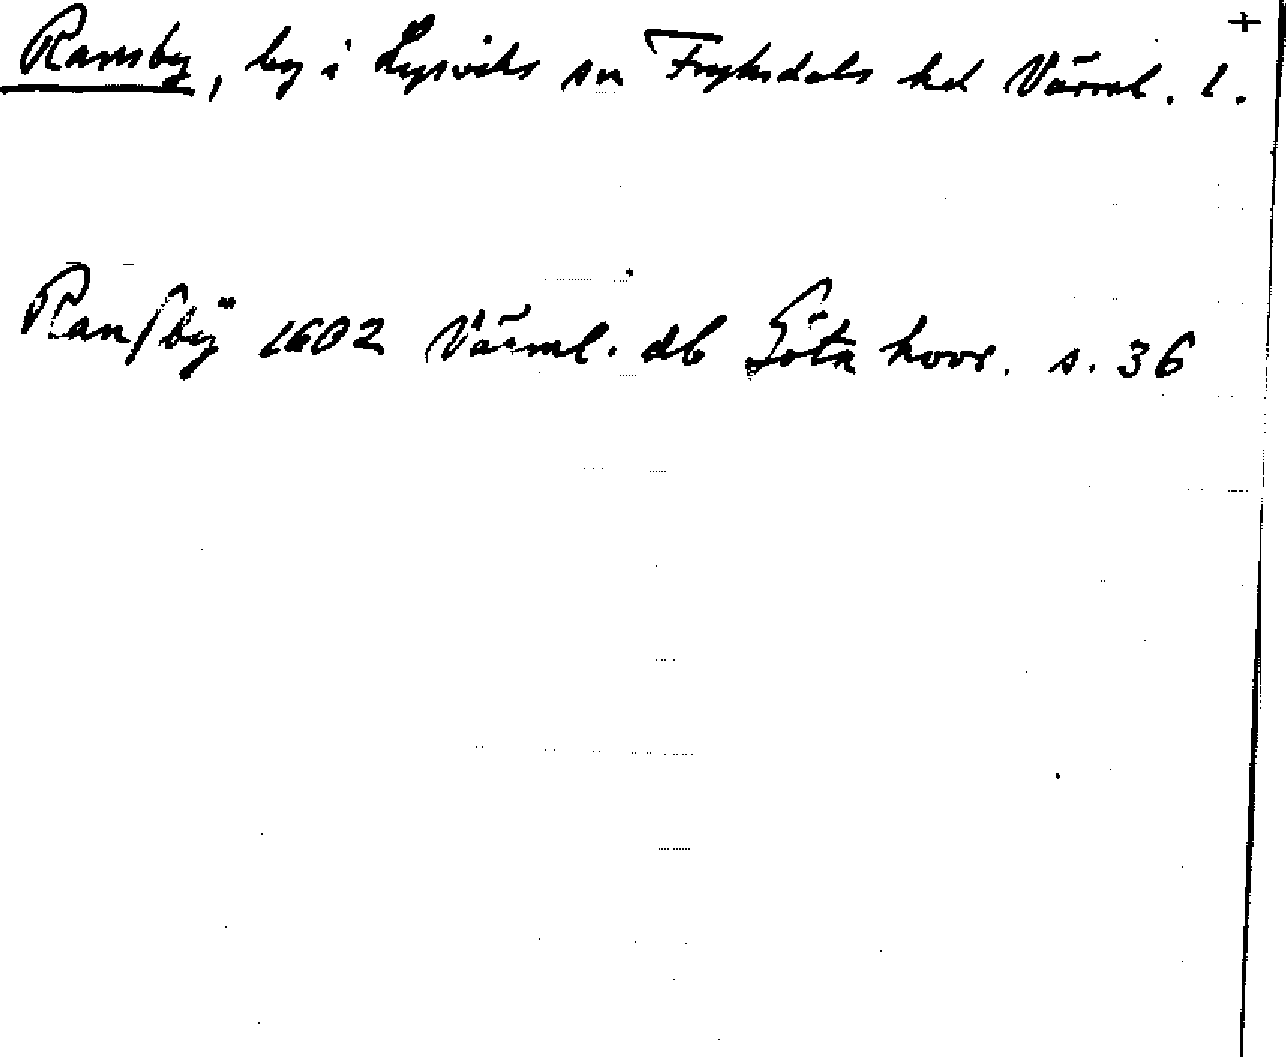 +
Ransby, by i Lysviks sn Fryksdals hd Värml. l.
Ranſbÿ 1602 Värml. db Göta hovr. s. 36